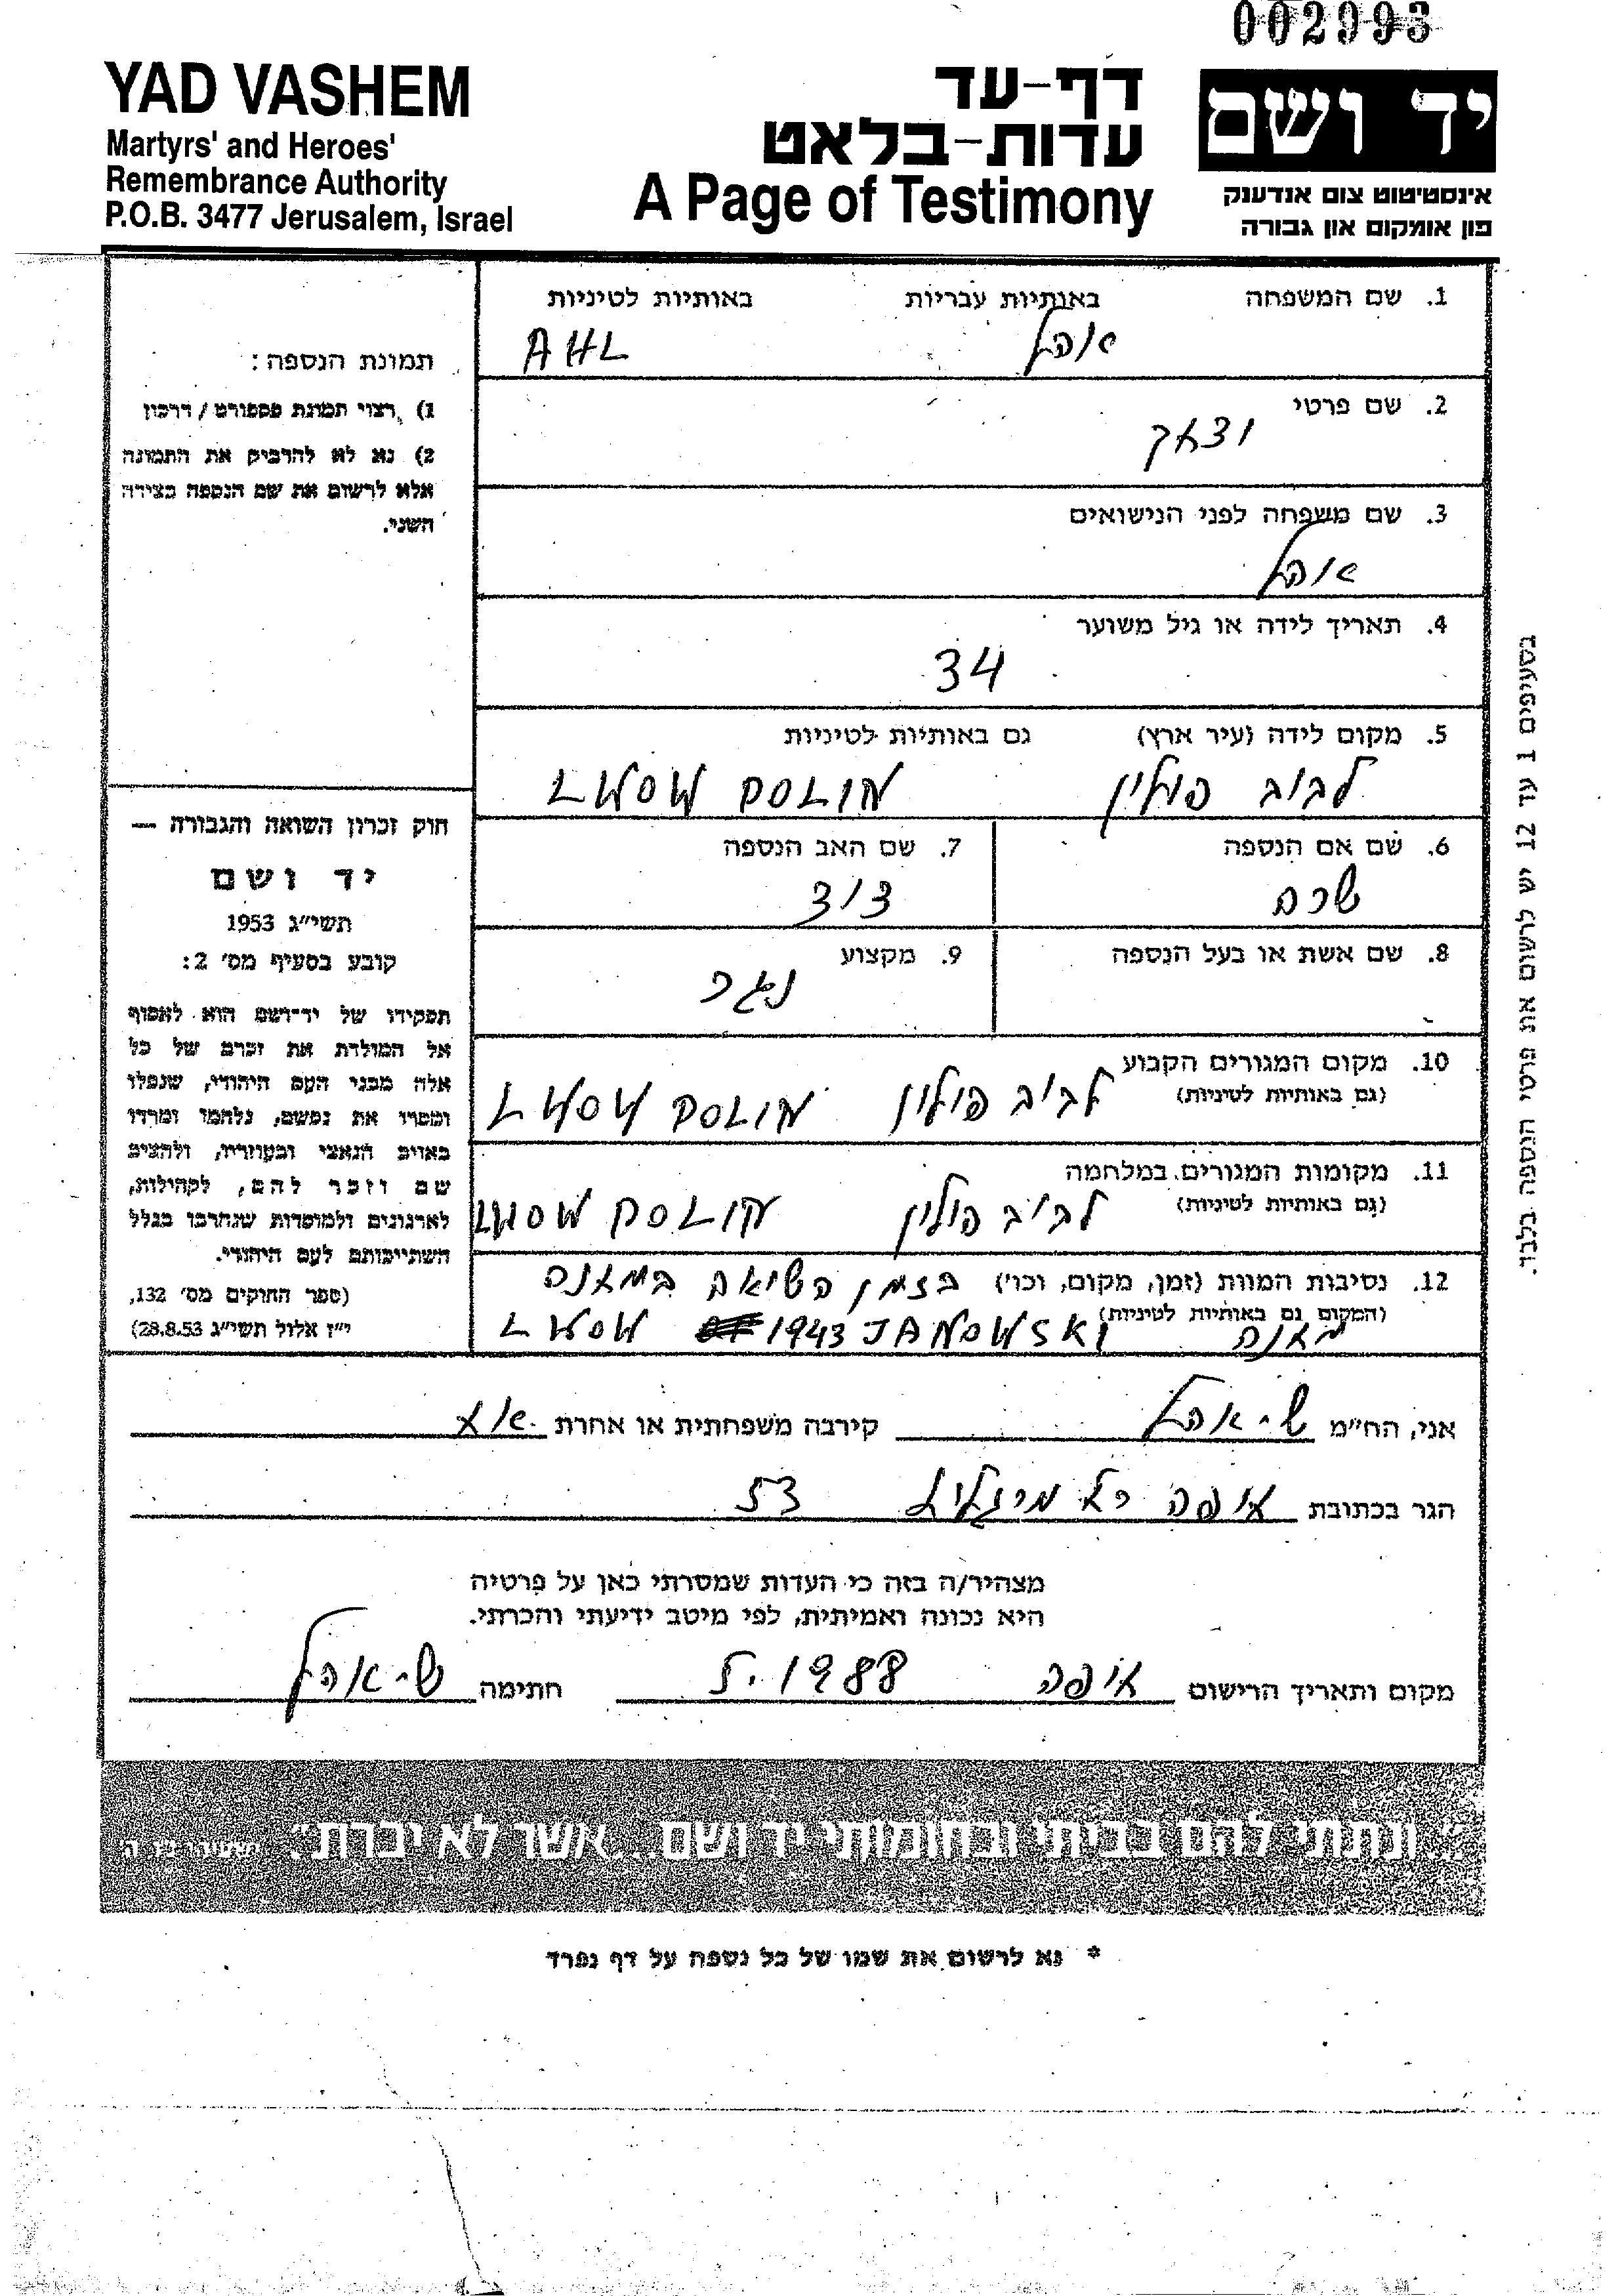 002993
YAD VASHEM
Martyrs' and Heroes'
Remembrance Authority
P.O.B. 3477 Jerusalem, Israel
דף-עד
עדות-בלאט
A Page of Testimony
יד ושם
אינסטיטוט צום אנדענק
פון אומקום און גבורה
1. שם המשפחה באותיות עבריות באותיות לטיניות
אהל AHL
2. שם פרטי
3. שם משפחה לפני הנישואים
אהל
4. תאריך לידה או גיל משוער
34
5. מקום לידה (עיר ארץ) גם באותיות לטיניות
לבוב פולין LWOW POLIN
6. שם אם הנספה
שרה
7. שם האב הנספה
דוד
8. שם אשת או בעל הנספה
9. מקצוע
נגר
10. מקום המגורים הקבוע
(גם באותיות לטיניות)
לבוב פולין LWOW POLIN
11. מקומות המגורים במלחמה
(גם באותיות לטיניות)
לבוב פולין LWOW POLIN
12. נסיבות המוות (זמן, מקום, וכו') בזמן השואה במחנה
(המקום גם באותיות לטיניות)
מחנה LWOW 1943 JANOWSKI
תמונת הנספה:
1) רצוי תמונת פספורט / דרכון
2) נא לא להדביק את התמונה
אלא לרשום את שם הנספה בצידה
השני.
חוק זכרון השואה והגבורה —
יד ושם
תשי"ג 1953
קובע בסעיף מס' 2:
תפקידו של יד-ושם הוא לאסוף
אל המולדת את זכרם של כל
אלה מבני העם היהודי, שנפלו
ומסרו את נפשם, נלחמו ומרדו
באויב הנאצי ובעוזריו, ולהציב
שם וזכר להם, לקהילות,
לארגונים ולמוסדות שנחרבו בגלל
השתייכותם לעם היהודי.
(ספר החוקים מס' 132,
י"ז אלול תשי"ג 28.8.53)
בסעיפים 1 עד 12 יש לרשום את פרטי הנספה בלבד.
אני, הח"מ ש. אהל קירבה משפחתית או אחרת אח
הגר בכתובת חיפה 53
מצהיר/ה בזה כי העדות שמסרתי כאן על פרטיה
היא נכונה ואמיתית, לפי מיטב ידיעתי והכרתי.
מקום ותאריך הרישום חיפה 5.1988 חתימה ש. אהל
"ונתתי להם בביתי ובחומותי יד ושם...אשר לא יכרת"
* נא לרשום את שמו של כל נספה על דף נפרד